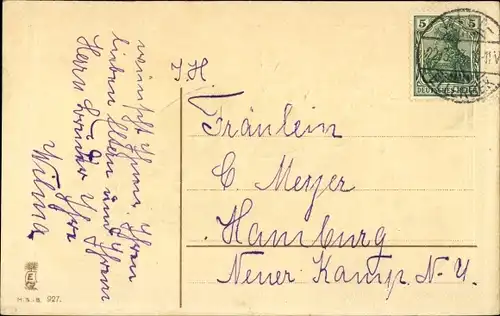 wünscht Ihnen, Ihren
lieben Eltern und Ihrem
Herrn Bruder Ihre
Wilma
I H.
Fräulein
C Meyer
Hamburg
Neuer Kamp.
5
5
DEUTSCHES REICH
E
H.S.B. 927.